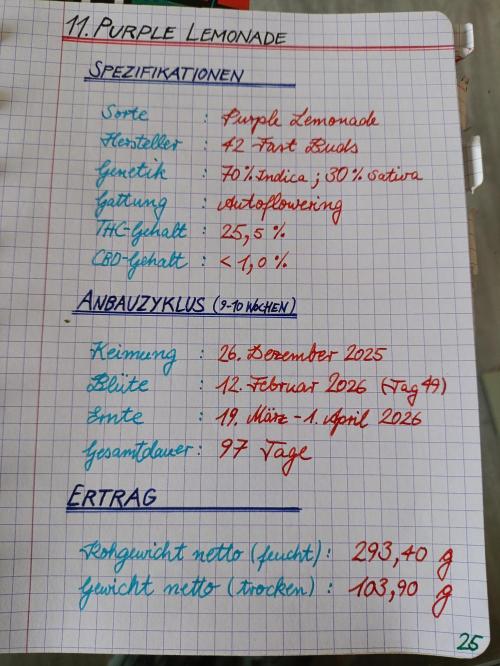 11. PURPLE LEMONADE
SPEZIFIKATIONEN
Sorte : Purple Lemonade
Hersteller : 42 Fast Buds
Genetik : 70% Indica ; 30% Sativa
Gattung : Autoflowering
THC-Gehalt : 25,5 %
CBD-Gehalt : < 1,0 %
ANBAUZYKLUS (9-10 WOCHEN)
Keimung : 26. Dezember 2025
Blüte : 12. Februar 2026 (Tag 49)
Ernte : 19. März - 1. April 2026
Gesamtdauer : 97 Tage
ERTRAG
Rohgewicht netto (feucht) : 293,40 g
Gewicht netto (trocken) : 103,90 g
25